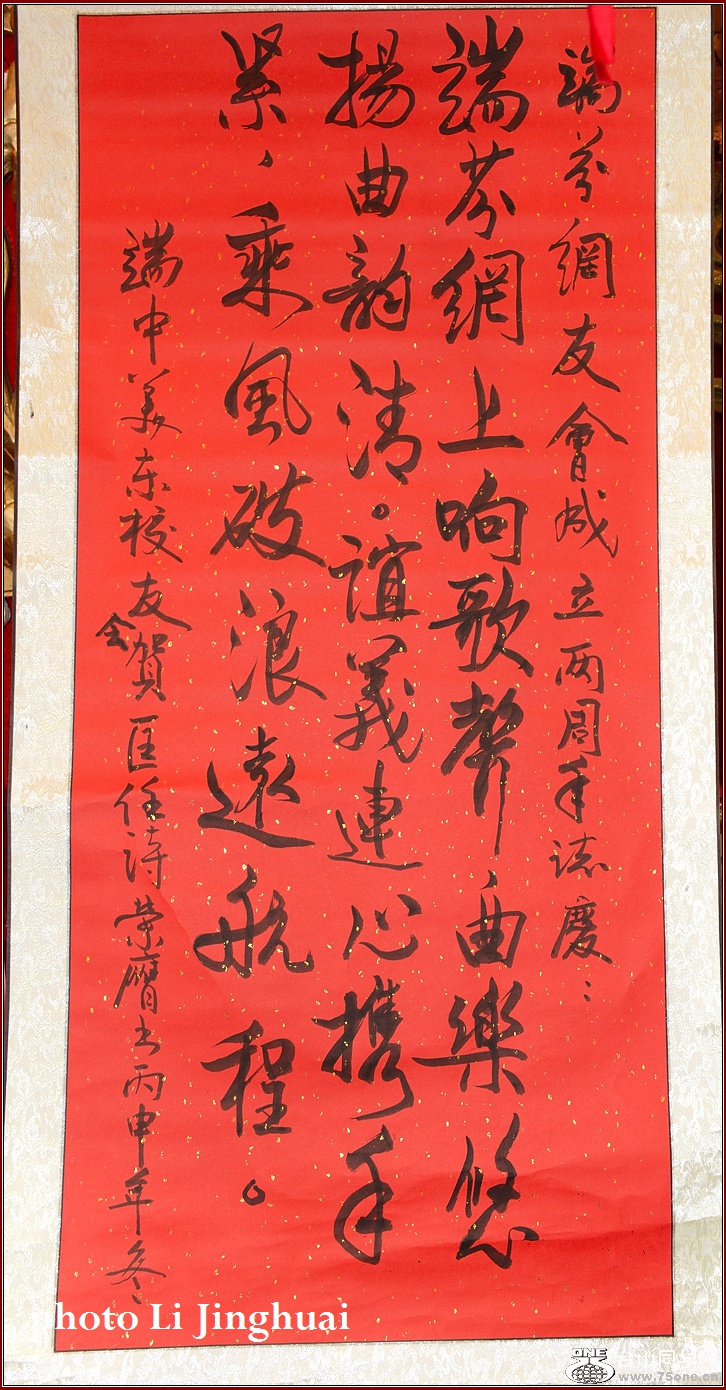 端芬網友會成立两周年誌慶：
端芬網上响歌聲、曲樂悠
揚曲韵清。誼義連心攜手
紧、乘風破浪遠航程。
端中美东校友会賀匡任詩荣膺书丙申年冬、
photo Li Jinghuai
ONE
www.75one.cn